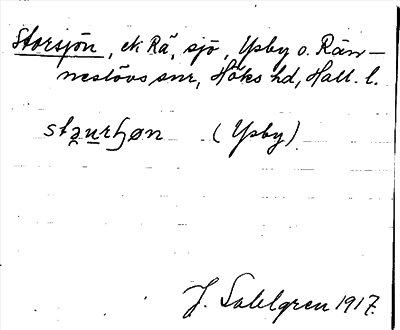 Storsjön, ek Rä, sjö, Ysby o. Rän-
neslövs snr, Höks hd, Hall. l.
(Ysby)
J. Sahlgren 1917.